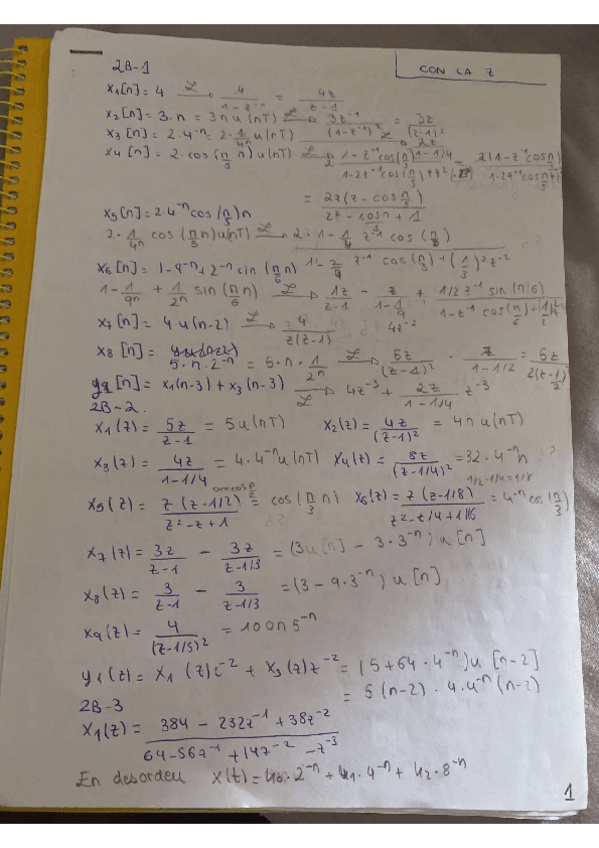 2B-1
CON LA Z
x1[n]= 4 Z→ 4/(1-z^-1) = 4z/(z-1)
x2[n]= 3·n = 3nu(nT) Z→ 3z^-1/(1-z^-1)^2 = 3z/(z-1)^2
x3[n]= 2·4^-n = 2·1/4^n u(nT) → 2z/(1-1/4)
x4[n]= 2·cos(π/3 n)u(nT) Z→ 2 (1-z^-1cos(π/3))
= 2z(z-cos π/3)/(z^2-cosπ+1)
x5[n]= 2·4^-n cos(π/3)n
2·1/4^n cos(π/3 n)u(nT) Z→ 2·1-1/4 z^-1 cos(π/3)
1-2/4 z^-1 cos(π/3)+(1/3)^2 z^-2
x6[n]= 1-9^-n+2^-n sin(π/6 n)
1-1/9^n + 1/2^n sin(π/6 n) Z→ 1z/(z-1) - z/(1-1/9) + 1/2z^-1 sin(π/6)
x7[n]= 4·u(n-2) Z→ 4/(z(z-1)) 4z^-2
x8[n]= 5·n·2^-n = 5·n·1/2^n Z→ 5z/(z-1)^2 · z/(1-1/2) = 5z
y1[n]= x1(n-3)+x3(n-3) Z→ 4z^-3 + 2z/(1-1/4) z^-3
2B-2.
x1(z)= 5z/(z-1) = 5u(nT) x2(z)= 4z/(z-1)^2 = 4nu(nT)
x3(z)= 4z/(1-1/4) = 4·4^-n u(nT) x4(z)= 8z/(z-1/4)^2 = 32·4^-n n
1/2-1/4=1/8
x5(z)= z(z-1/2)/(z^2-z+1) = cos(π/3 n) x6(z)= z(z-1/8)/(z^2-z/4+1/16) = 4^-n cos(π/3)
x7(z)= 3z/(z-1) - 3z/(z-1/3) = (3u[n]-3·3^-n)u[n]
x8(z)= 3/(z-1) - 3/(z-1/3) = (3-9·3^-n)u[n]
x9(z)= 4/(z-1/5)^2 = 100n5^-n
y1(z)= x1(z)z^-2 + x3(z)z^-2 = (5+64·4^-n)u[n-2]
= 5(n-2)·4·4^-n(n-2)
2B-3
x1(z)= (384-232z^-1+38z^-2)/(64-56z^-1+14z^-2-z^-3)
En desorden x(z)=k0·2^-n+k1·4^-n+k2·8^-n
1